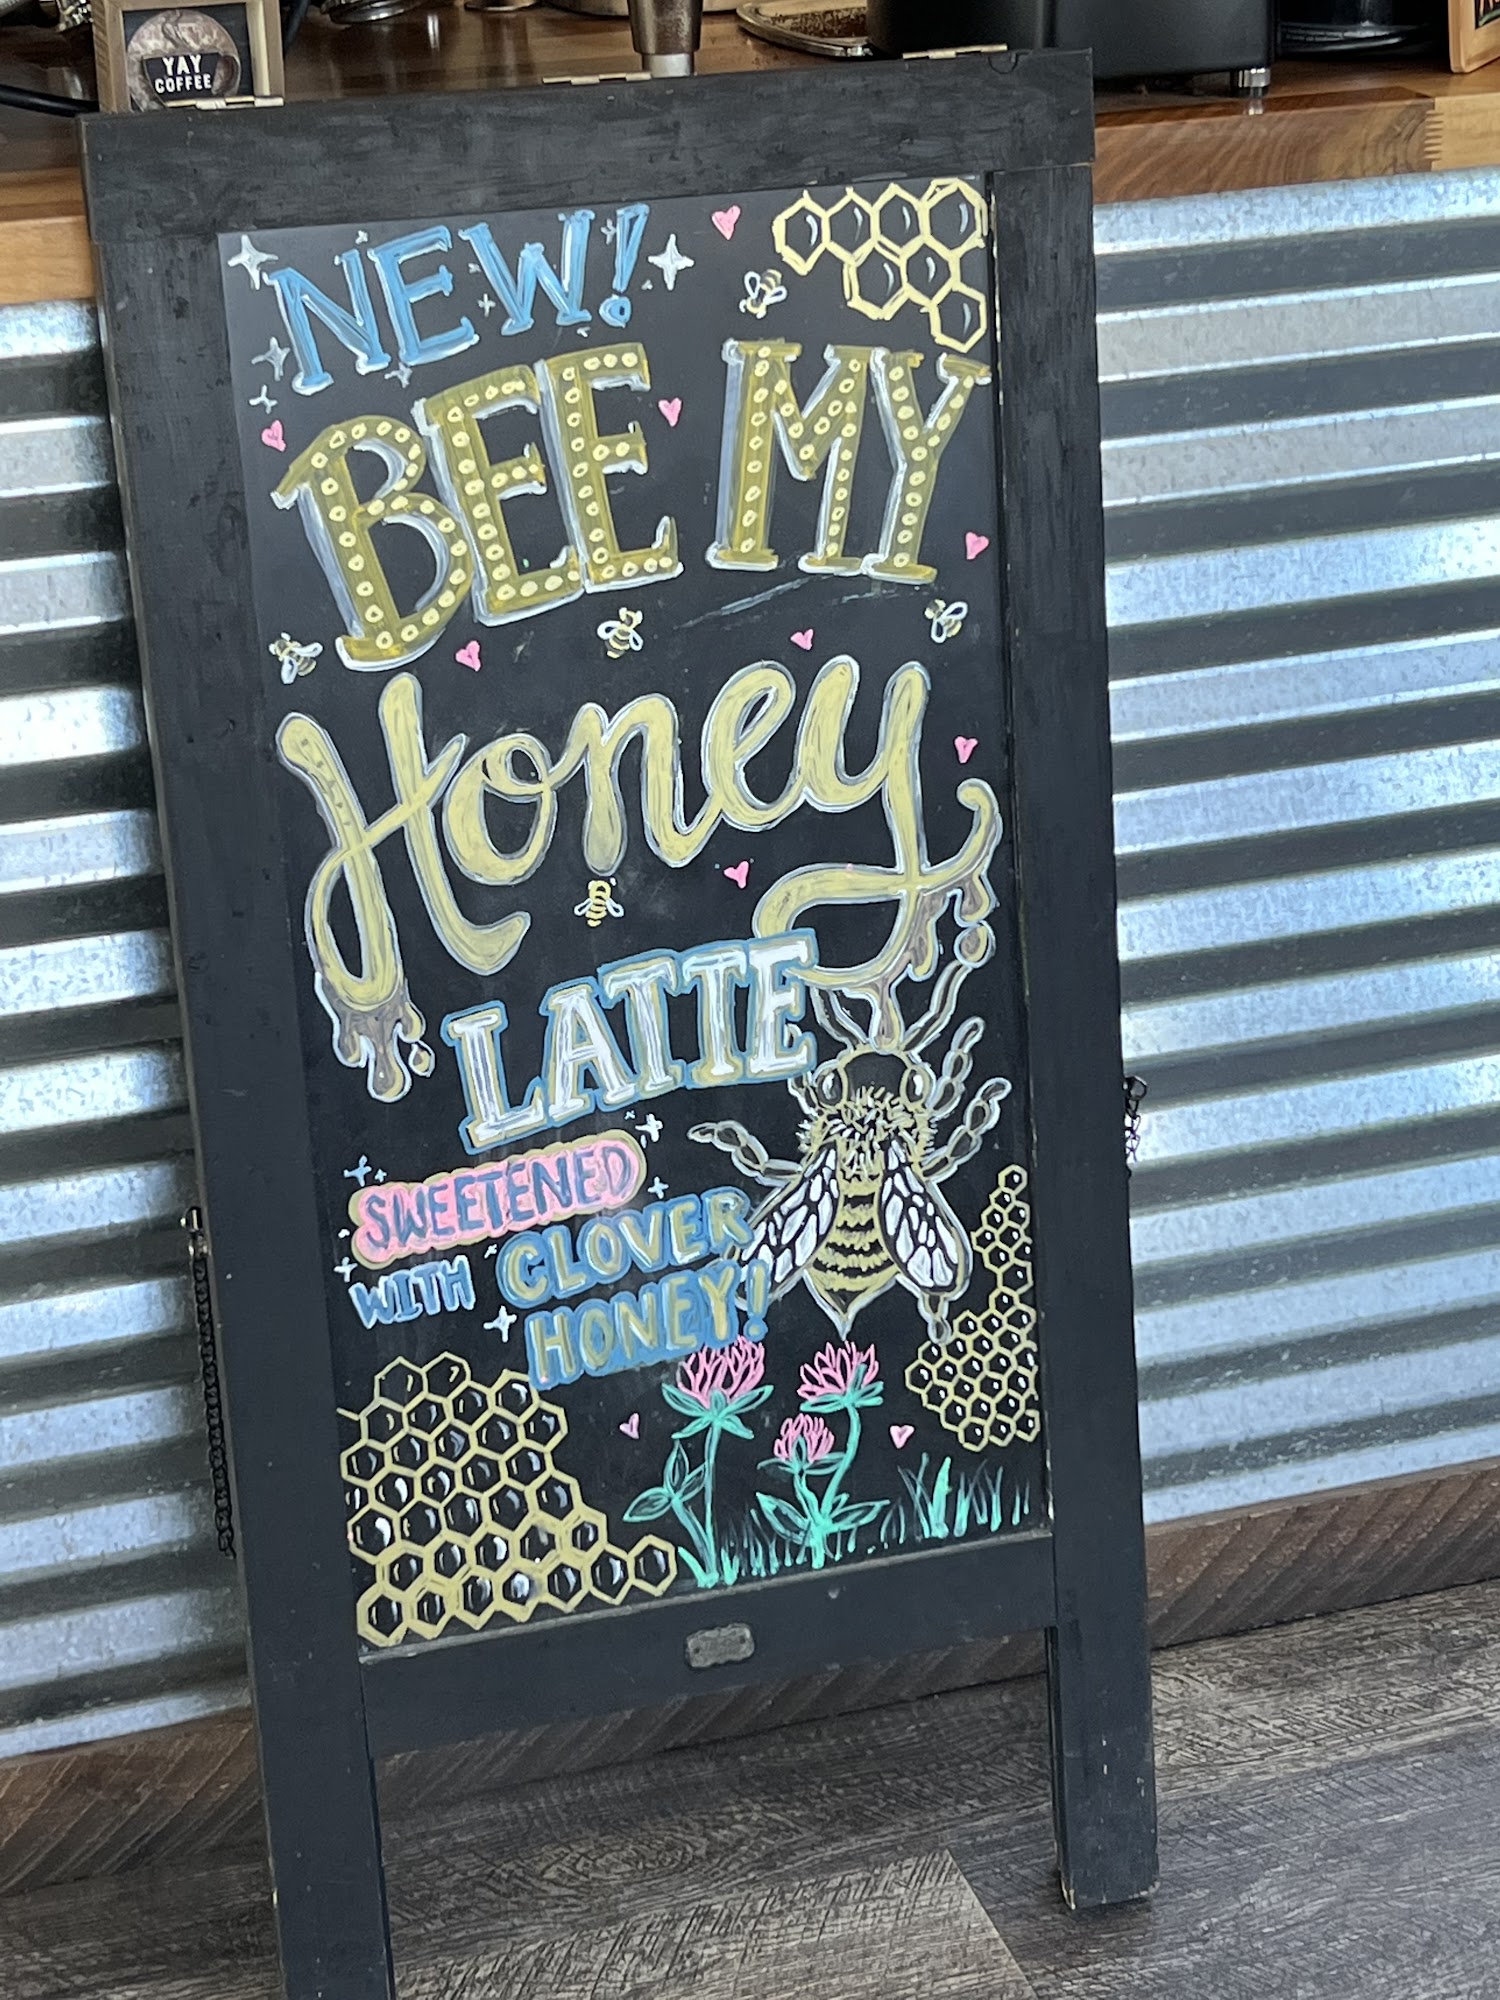 YAY
COFFEE
NEW!
BEE MY
Honey
LATTE
SWEETENED
WITH CLOVER
HONEY!